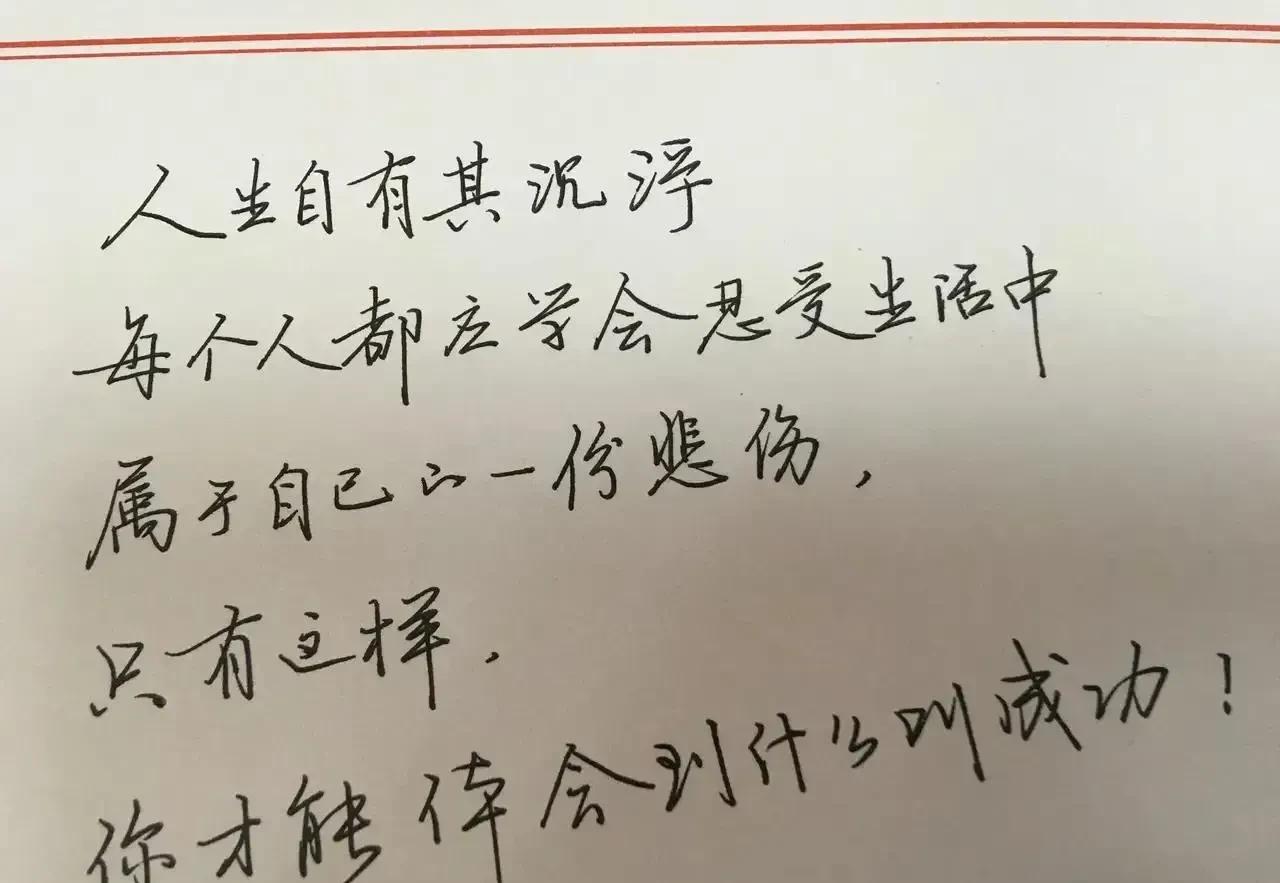 人生自有其沉浮
每个人都应学会忍受生活中
属于自己的一份悲伤，
只有这样，
你才能体会到什么叫成功！